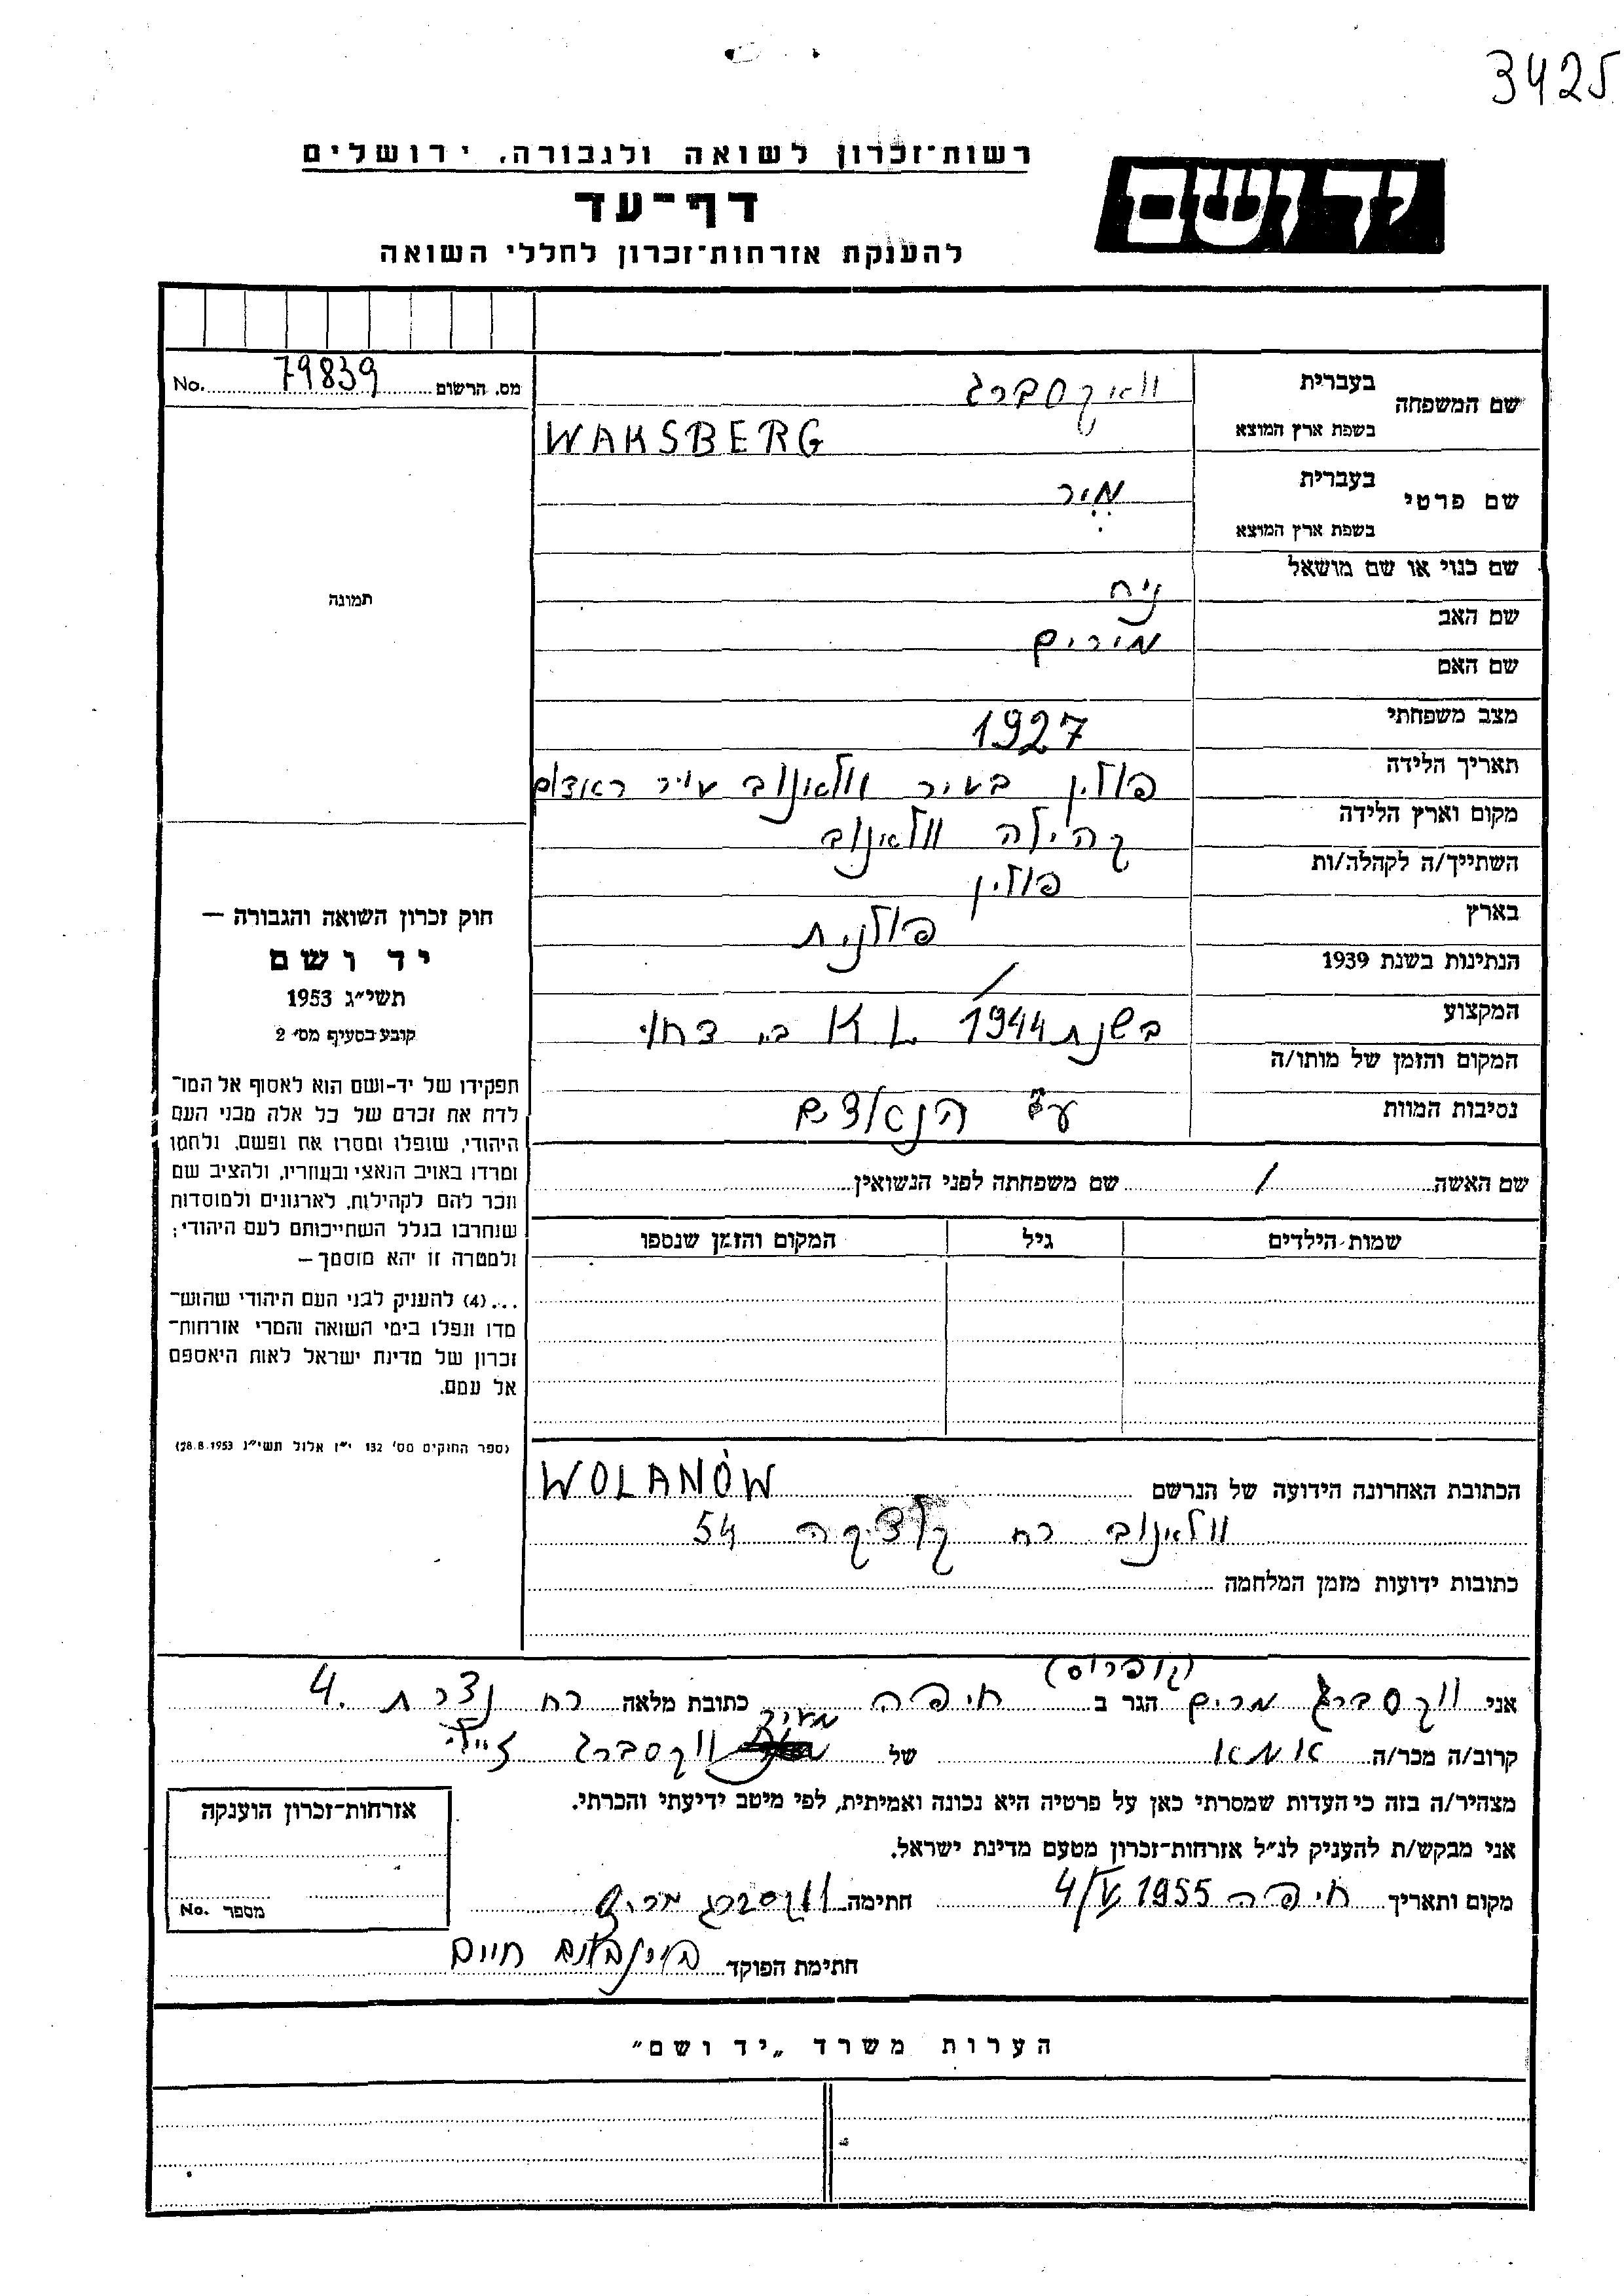 3425
רשות־זכרון לשואה ולגבורה, ירושלים
יד ושם
דף־עד
להענקת אזרחות־זכרון לחללי השואה
מס. הרשום 79839 No.
שם המשפחה בעברית וואקסברג
בשפת ארץ המוצא WAKSBERG
שם פרטי בעברית מיר
בשפת ארץ המוצא
שם כנוי או שם מושאל
שם האב נח
שם האם מירים
מצב משפחתי
תאריך הלידה 1927
מקום וארץ הלידה פולין בעיר וולאנוב עויר ראדום
השתייך/ה לקהלה/ות קהילה וולאנוב
בארץ פולין
הנתינות בשנת 1939 פולנית
המקצוע /
המקום והזמן של מותו/ה בשנת 1944 K L
נסיבות המוות הנאצים
תמונה
חוק זכרון השואה והגבורה —
יד ושם
תשי״ג 1953
קובע בסעיף מס׳ 2
תפקידו של יד-ושם הוא לאסוף אל המו־
לדת את זכרם של כל אלה מבני העם
היהודי, שנפלו ומסרו את נפשם, נלחמו
ומרדו באויב הנאצי ובעוזריו, ולהציב שם
וזכר להם לקהילות, לארגונים ולמוסדות
שנחרבו בגלל השתייכותם לעם היהודי;
ולמטרה זו יהא מוסמך —
...(4) להעניק לבני העם היהודי שהוש־
מדו ונפלו בימי השואה והמרי אזרחות־
זכרון של מדינת ישראל לאות היאספם
אל עמם.
(ספר החוקים מס׳ 132 י״ז אלול תשי״ג 28.8.1953)
שם האשה / שם משפחתה לפני הנשואין
שמות הילדים גיל המקום והזמן שנספו
הכתובת האחרונה הידועה של הנרשם WOLANÓW
וולאנוב רח 54
כתובות ידועות מזמן המלחמה
(קופריס)
אני ווקסברג מרים הגר ב חיפה כתובת מלאה רח נצרת 4.
קרוב/ה מכר/ה אמא של מאיר ווקסברג
מצהיר/ה בזה כי העדות שמסרתי כאן על פרטיה היא נכונה ואמיתית, לפי מיטב ידיעתי והכרתי.
אני מבקש/ת להעניק לנ״ל אזרחות־זכרון מטעם מדינת ישראל.
מקום ותאריך חיפה 4/V 1955 חתימה ווקסברג מרים
חתימת הפוקד חיים
אזרחות־זכרון הוענקה
מספר No.
הערות משרד „יד ושם״